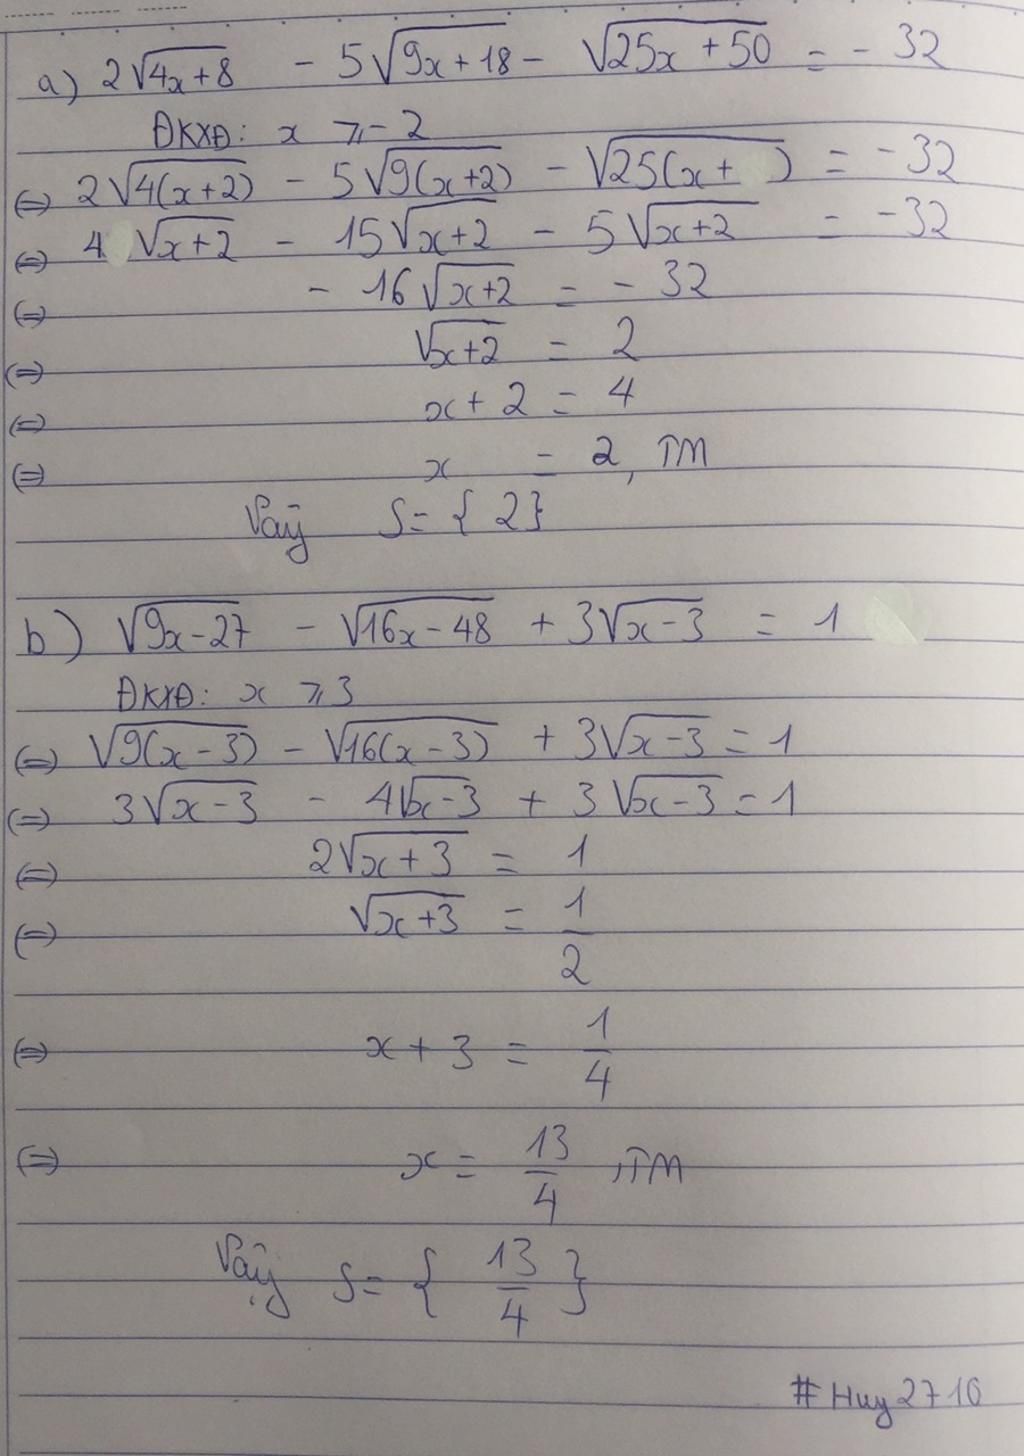 a) 2√(4x+8) - 5√(9x+18) - √(25x+50) = -32
ĐKXĐ: x ⩾ -2
⇔ 2√(4(x+2)) - 5√(9(x+2)) - √(25(x+ )) = -32
⇔ 4 √(x+2) - 15√(x+2) - 5√(x+2) = -32
⇔ - 16√(x+2) = - 32
⇔ √(x+2) = 2
⇔ x + 2 = 4
⇔ x = 2, TM
Vậy S = { 2}
b) √(9x-27) - √(16x-48) + 3√(x-3) = 1
ĐKXĐ: x ⩾ 3
⇔ √(9(x-3)) - √(16(x-3)) + 3√(x-3) = 1
⇔ 3√(x-3) - 4√(x-3) + 3√(x-3) = 1
⇔ 2√(x+3) = 1
⇔ √(x+3) = 1/2
⇔ x + 3 = 1/4
⇔ x = 13/4, TM
Vậy S = { 13/4 }
#Huy2710